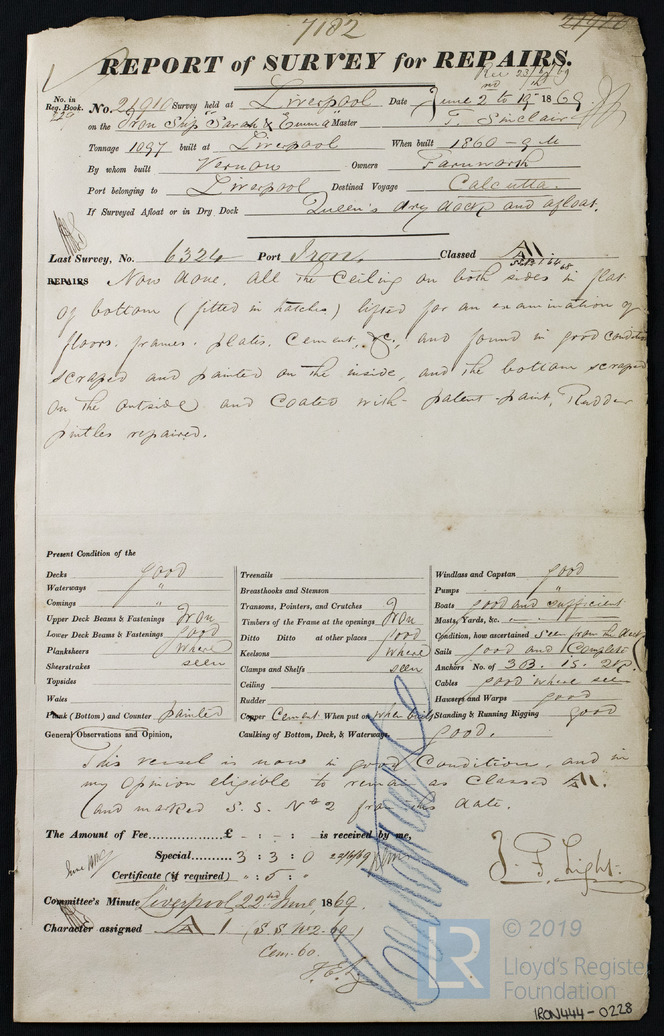 7182
21910
REPORT of SURVEY for REPAIRS.
Rec 23/6/69
No. in Reg. Book.
No. 21910 Survey held at Liverpool Date June 2 to 19th 1869
on the Iron Ship Sarah & Emma Master T. Sinclair
Tonnage 1097 built at Liverpool When built 1860 - 9 M
By whom built Vernon Owners Farnworth
Port belonging to Liverpool Destined Voyage Calcutta.
If Surveyed Afloat or in Dry Dock Queen's dry dock and afloat.
Last Survey, No. 6324 Port Iron. Classed A1
REPAIRS Now done, all the Ceiling on both sides in flat
of bottom (fitted in hatches) lifted for an examination of
floors. frames. plates. Cement. &c., and found in good condition
scraped and painted on the inside, and the bottom scraped
on the outside and Coated with patent paint, Rudder
pintles repaired.
Present Condition of the
Decks good
Waterways "
Comings "
Upper Deck Beams & Fastenings Iron
Lower Deck Beams & Fastenings good
Planksheers where
Sheerstrakes seen
Topsides
Wales
Plank (Bottom) and Counter painted
Treenails
Breasthooks and Stemson
Transoms, Pointers, and Crutches
Timbers of the Frame at the openings Iron
Ditto Ditto at other places good
Keelsons where
Clamps and Shelfs seen
Ceiling
Rudder
Copper Cement When put on when built
Windlass and Capstan good
Pumps "
Boats good and sufficient
Masts, Yards, &c.
Condition, how ascertained seen from the deck
Sails good and Complete
Anchors No. of 3 B. 1 S. 2 K.
Cables good where seen
Hawsers and Warps good
Standing & Running Rigging good
General Observations and Opinion, Caulking of Bottom, Deck, & Waterways, Good.
This vessel is now in good Condition, and in
my Opinion eligible to remain as Classed A1.
(and marked S. S. No 2 from this date.
The Amount of Fee...............£ - : - : is received by me,
Special.......... 3 : 3 : 0 22/6/69
Certificate (if required) " : 5 : "
J. F. Light.
Committee's Minute Liverpool 22nd June, 1869.
Character assigned A1 (S S No 2-69)
Cem. 60.
© 2019
LR
Lloyd's Register
Foundation
IRON444-0228